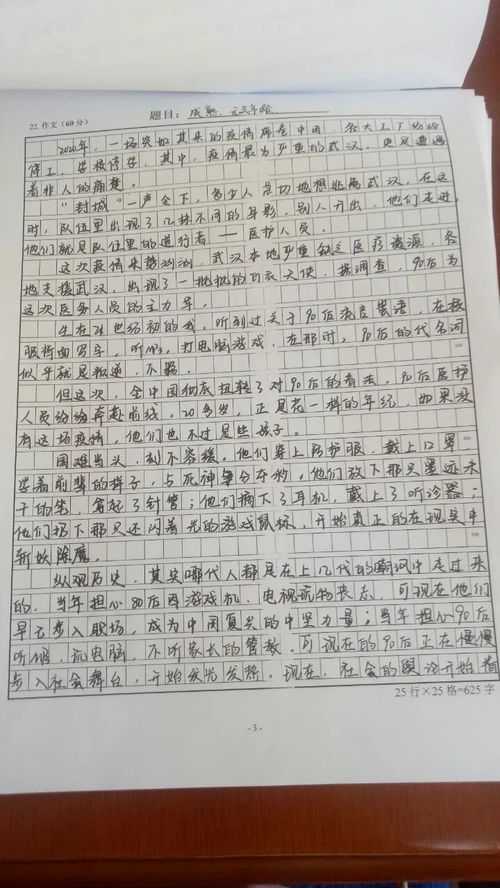 22. 作文（60分） 题目：成熟，无关年龄
2020年，一场突如其来的疫情席卷中国，各大工厂纷纷
停工，学校停学，其中，疫情最为严重的武汉，更是遭遇
着非人的痛楚。
“封城”一声令下，多少人急切地想逃离武汉，在这
时，队伍里出现了几抹不同的身影，别人开出，他们走进，
他们就是队伍里的逆行者——医护人员。
这次疫情来势汹汹，武汉本地严重缺乏医疗资源，各
地支援武汉，出现了一批批的白衣天使，据调查，90后为
这次医务人员的主力军。
生在21世纪初的我，听到过关于90后流言蜚语，在校
服背面写字，听MP3，打电脑游戏，在那时，90后的代名词
似乎就是叛逆，不羁。
但这次，全中国彻底扭转了对90后的看法，90后医护
人员纷纷奔赴前线，20多岁，正是花一样的年纪，如果没
有这场疫情，他们也不过是些孩子。
国难当头，刻不容缓，他们穿上防护服，戴上口罩，
学着前辈的样子，与死神争分夺秒，他们放下那只墨迹未
干的笔，拿起了针管；他们摘下了耳机，戴上了听诊器；
他们扔下那只还闪着光的游戏鼠标，开始真正的在现实中
斩妖除魔。
纵观历史，其实哪代人都是在上几代的嘲讽中走过来
的，当年担心80后因游戏机、电视玩物丧志，可现在他们
早已步入职场，成为中国复兴的中坚力量；当年担心90后
听MP3，玩电脑，不听家长的管教，可现在的90后正在慢慢
步入社会舞台，开始发光发热，现在，社会的舆论开始看
25行×25格=625字
-3-